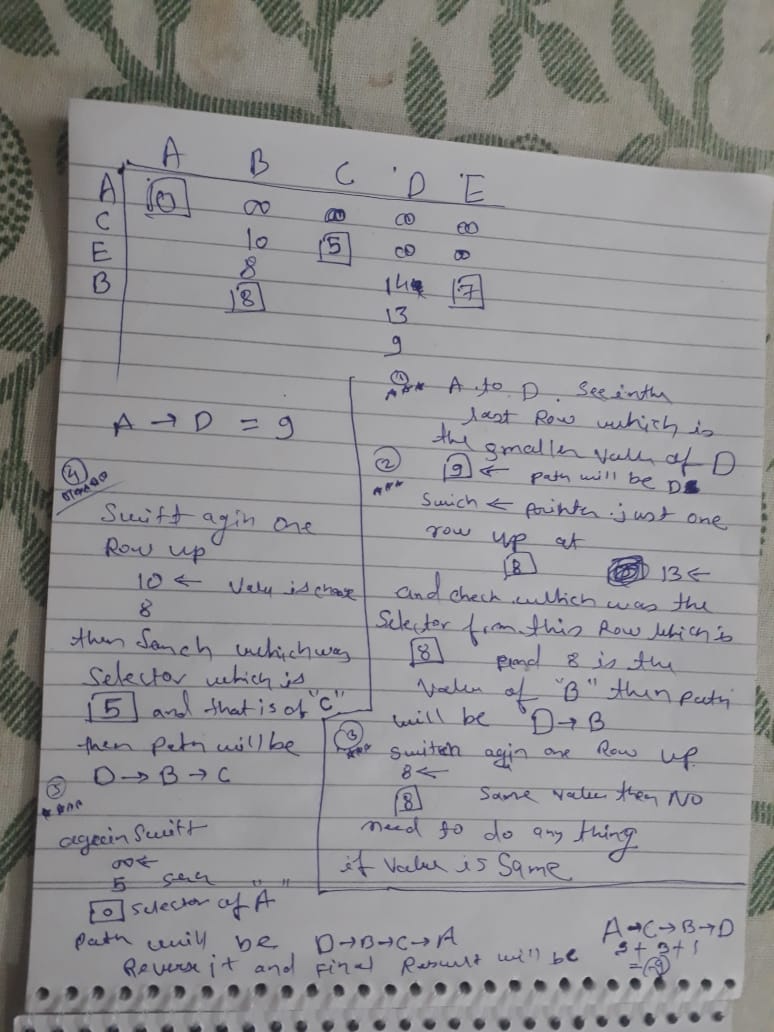 A B C D E
A 0 ∞ ∞ ∞ ∞
C 10 5 ∞ ∞
E 8
B 8 14 7
13
9
A → D = 9
① *** A to D. See in the
last Row which is
the smaller value of D
② *** 9 ← path will be D
Swich ← pointer just one
row up at
8 13 ←
and check which was the
Selector from this Row which is
8 and 8 is the
Value of "B" then path
will be D → B
③ *** Switch agin one Row up
8 ←
8 Same value then NO
need to do any thing
if value is Same
④
Swift agin one
Row up
10 ← Valu is chose
8
then Sarch which was
Selector which is
5 and that is of "C"
then path will be
D → B → C
⑤ ***
again Swift
∞ ←
5 " "
0 Selector of A
path will be D → B → C → A
Reverse it and Final Result will be
A → C → B → D
5 + 3 + 1
= 9